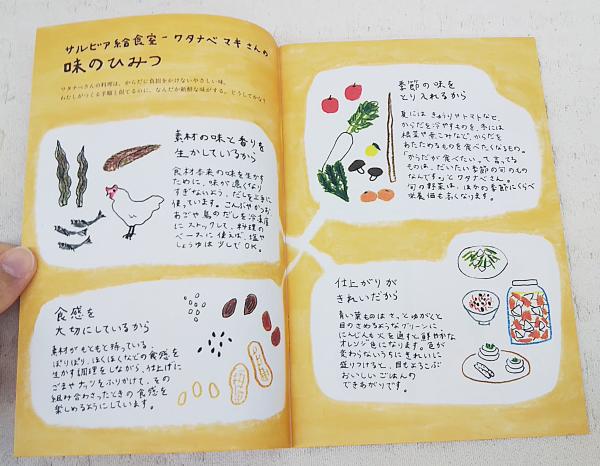 サルビア給食室－ワタナベマキさんの
味のひみつ
ワタナベさんの料理は、からだに負担をかけないやさしい味。
わたしがつくる手順と似てるのに、なんだか新鮮な味がする。どうしてかな？
素材の味と香りを
生かしているから
食材本来の味を生かす
ために、味が濃くなり
すぎないよう、だしを上手に
使っています。こんぶやかつお、
あごや鳥のだしを冷凍庫
にストックして、料理の
ベースに使えば、塩や
しょうゆは少しでOK。
食感を
大切にしているから
素材がもともと持っている、
ぱりぱり、ほくほくなどの食感を
生かす調理をしながら、仕上げに
ごまやナッツをふりかけて、その
組み合わさったときの食感を
楽しめるようにしています。
季節の味を
とり入れるから
夏にはきゅうりやトマトなど、
からだを冷やすものを、冬には
根菜や煮こみなど、からだを
あたためるものを食べたくなるもの。
「からだが食べたい、て言ってる
ものは、だいたい季節の旬のもの
なんです。」とワタナベさん。
旬の野菜は、ほかの季節にくらべ
栄養価も高くなります。
仕上がりが
きれいだから
青い葉ものはさっとゆがくと
目のさめるようなグリーンに、
にんじんも火を通すと鮮やかな
オレンジ色になります。色が
変わらないうちにきれいに
盛りつけると、目もよろこぶ
おいしいごはんの
できあがりです。